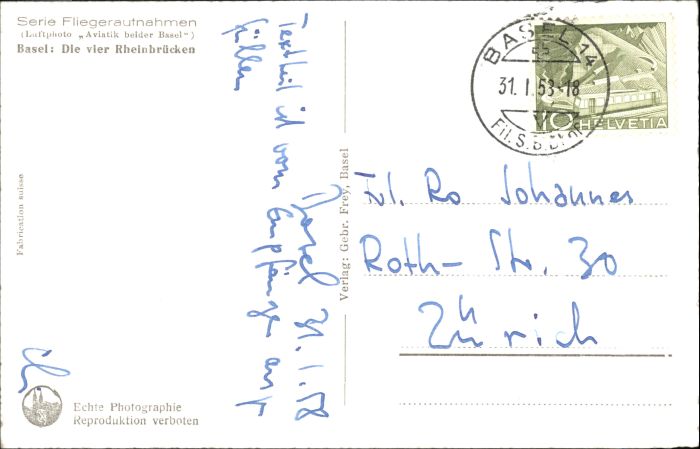 Serie Fliegeraufnahmen
(Luftphoto „Aviatik beider Basel")
Basel: Die vier Rheinbrücken
Fabrication suisse
Basel 31.1.58
Textteil ist vom Empfänger aus
füllen
Echte Photographie
Reproduktion verboten
Verlag: Gebr. Frey, Basel
BASEL 14
31.I.58-18
Fil. S.B.B.
10 HELVETIA
Frl. Ro Johannes
Roth- Str. 30
Zürich